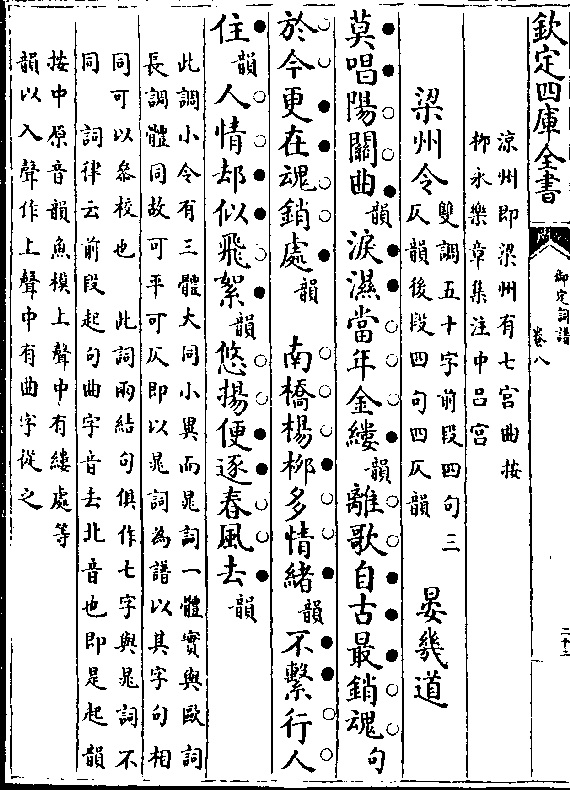 欽定四庫全書
御定詞譜
卷八
二十二
涼州即梁州有七宮曲按
柳永樂章集注中呂宮
梁州令
雙調五十字前段四句三
仄韻後段四句四仄韻
晏幾道
莫唱陽關曲韻淚濕當年金縷韻離歌自古最銷魂句
於今更在魂銷處韻 南橋楊柳多情緒韻不繫行人
住韻人情却似飛絮韻悠揚便逐春風去韻
此調小令有三體大同小異而晁詞一體實與歐詞
長調體同故可平可仄即以晁詞為譜以其字句相
同可以叅校也 此詞兩結句俱作七字與晁詞不
同 詞律云前段起句曲字音去北音也即是起韻
按中原音韻魚模上聲中有縷處等
韻以入聲作上聲中有曲字從之